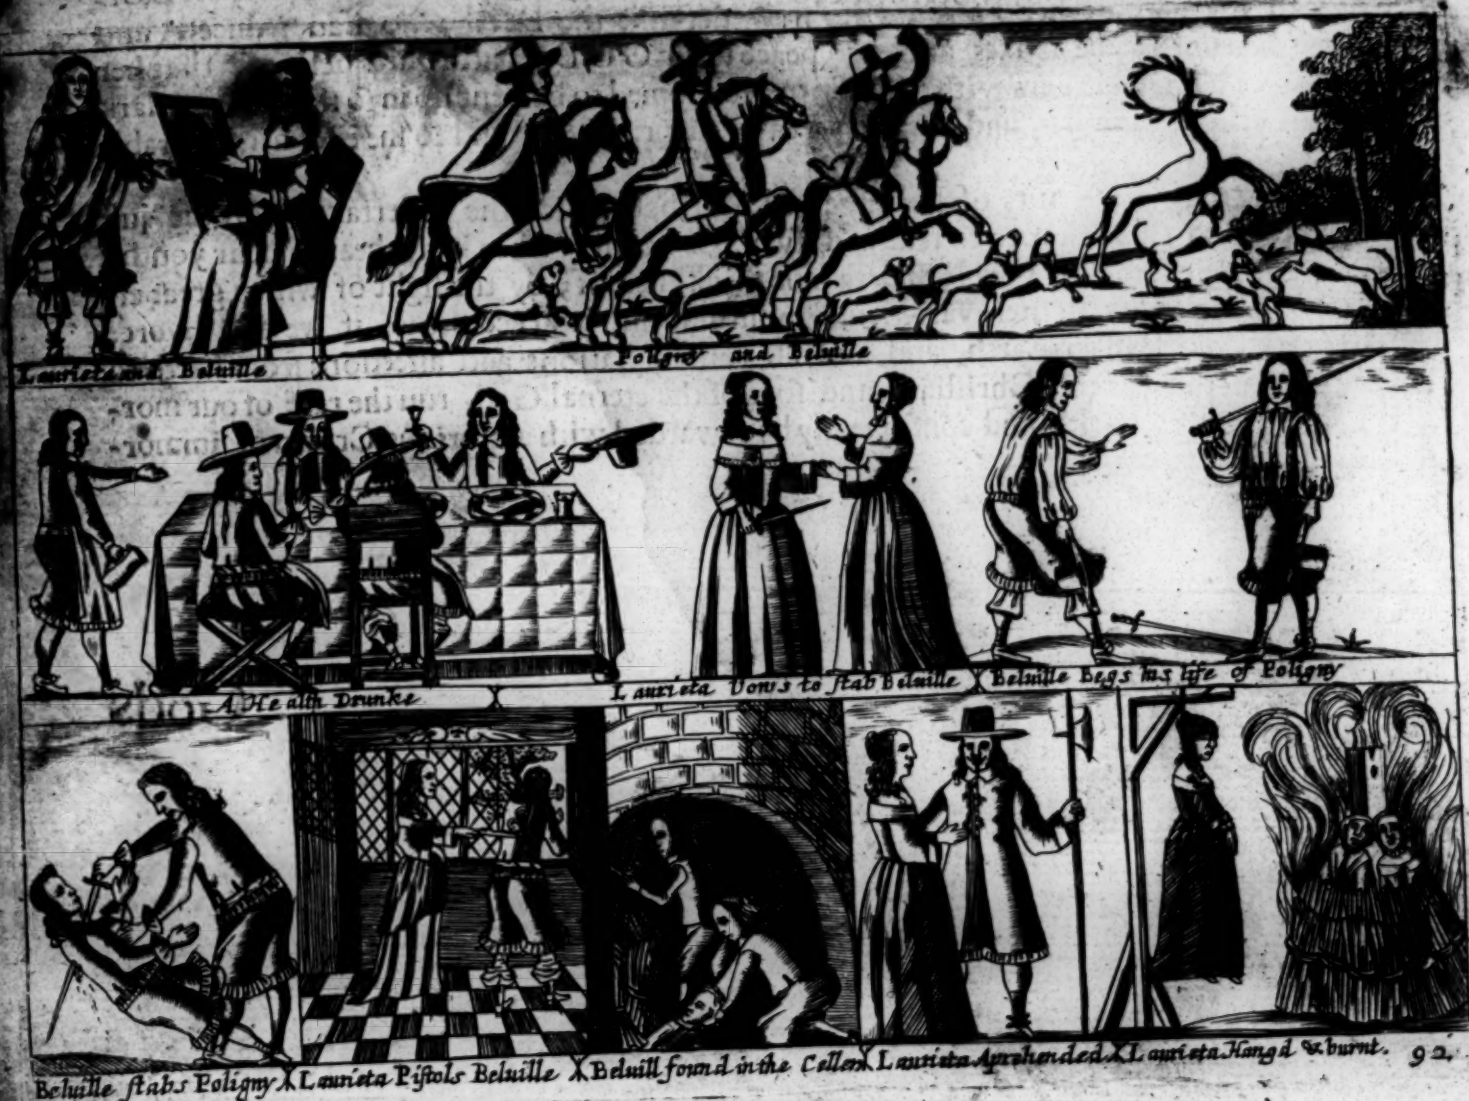 Laurieta and Belville
Poligny and Belville
A Health Drunke
Laurieta Vows to stab Belville
Belville Begs his life of Poligny
Belville stabs Poligny
Laurieta Pistols Belville
Belvill found in the Celler
Laurieta Aprehended
Laurieta Hangd & burnt.
92.